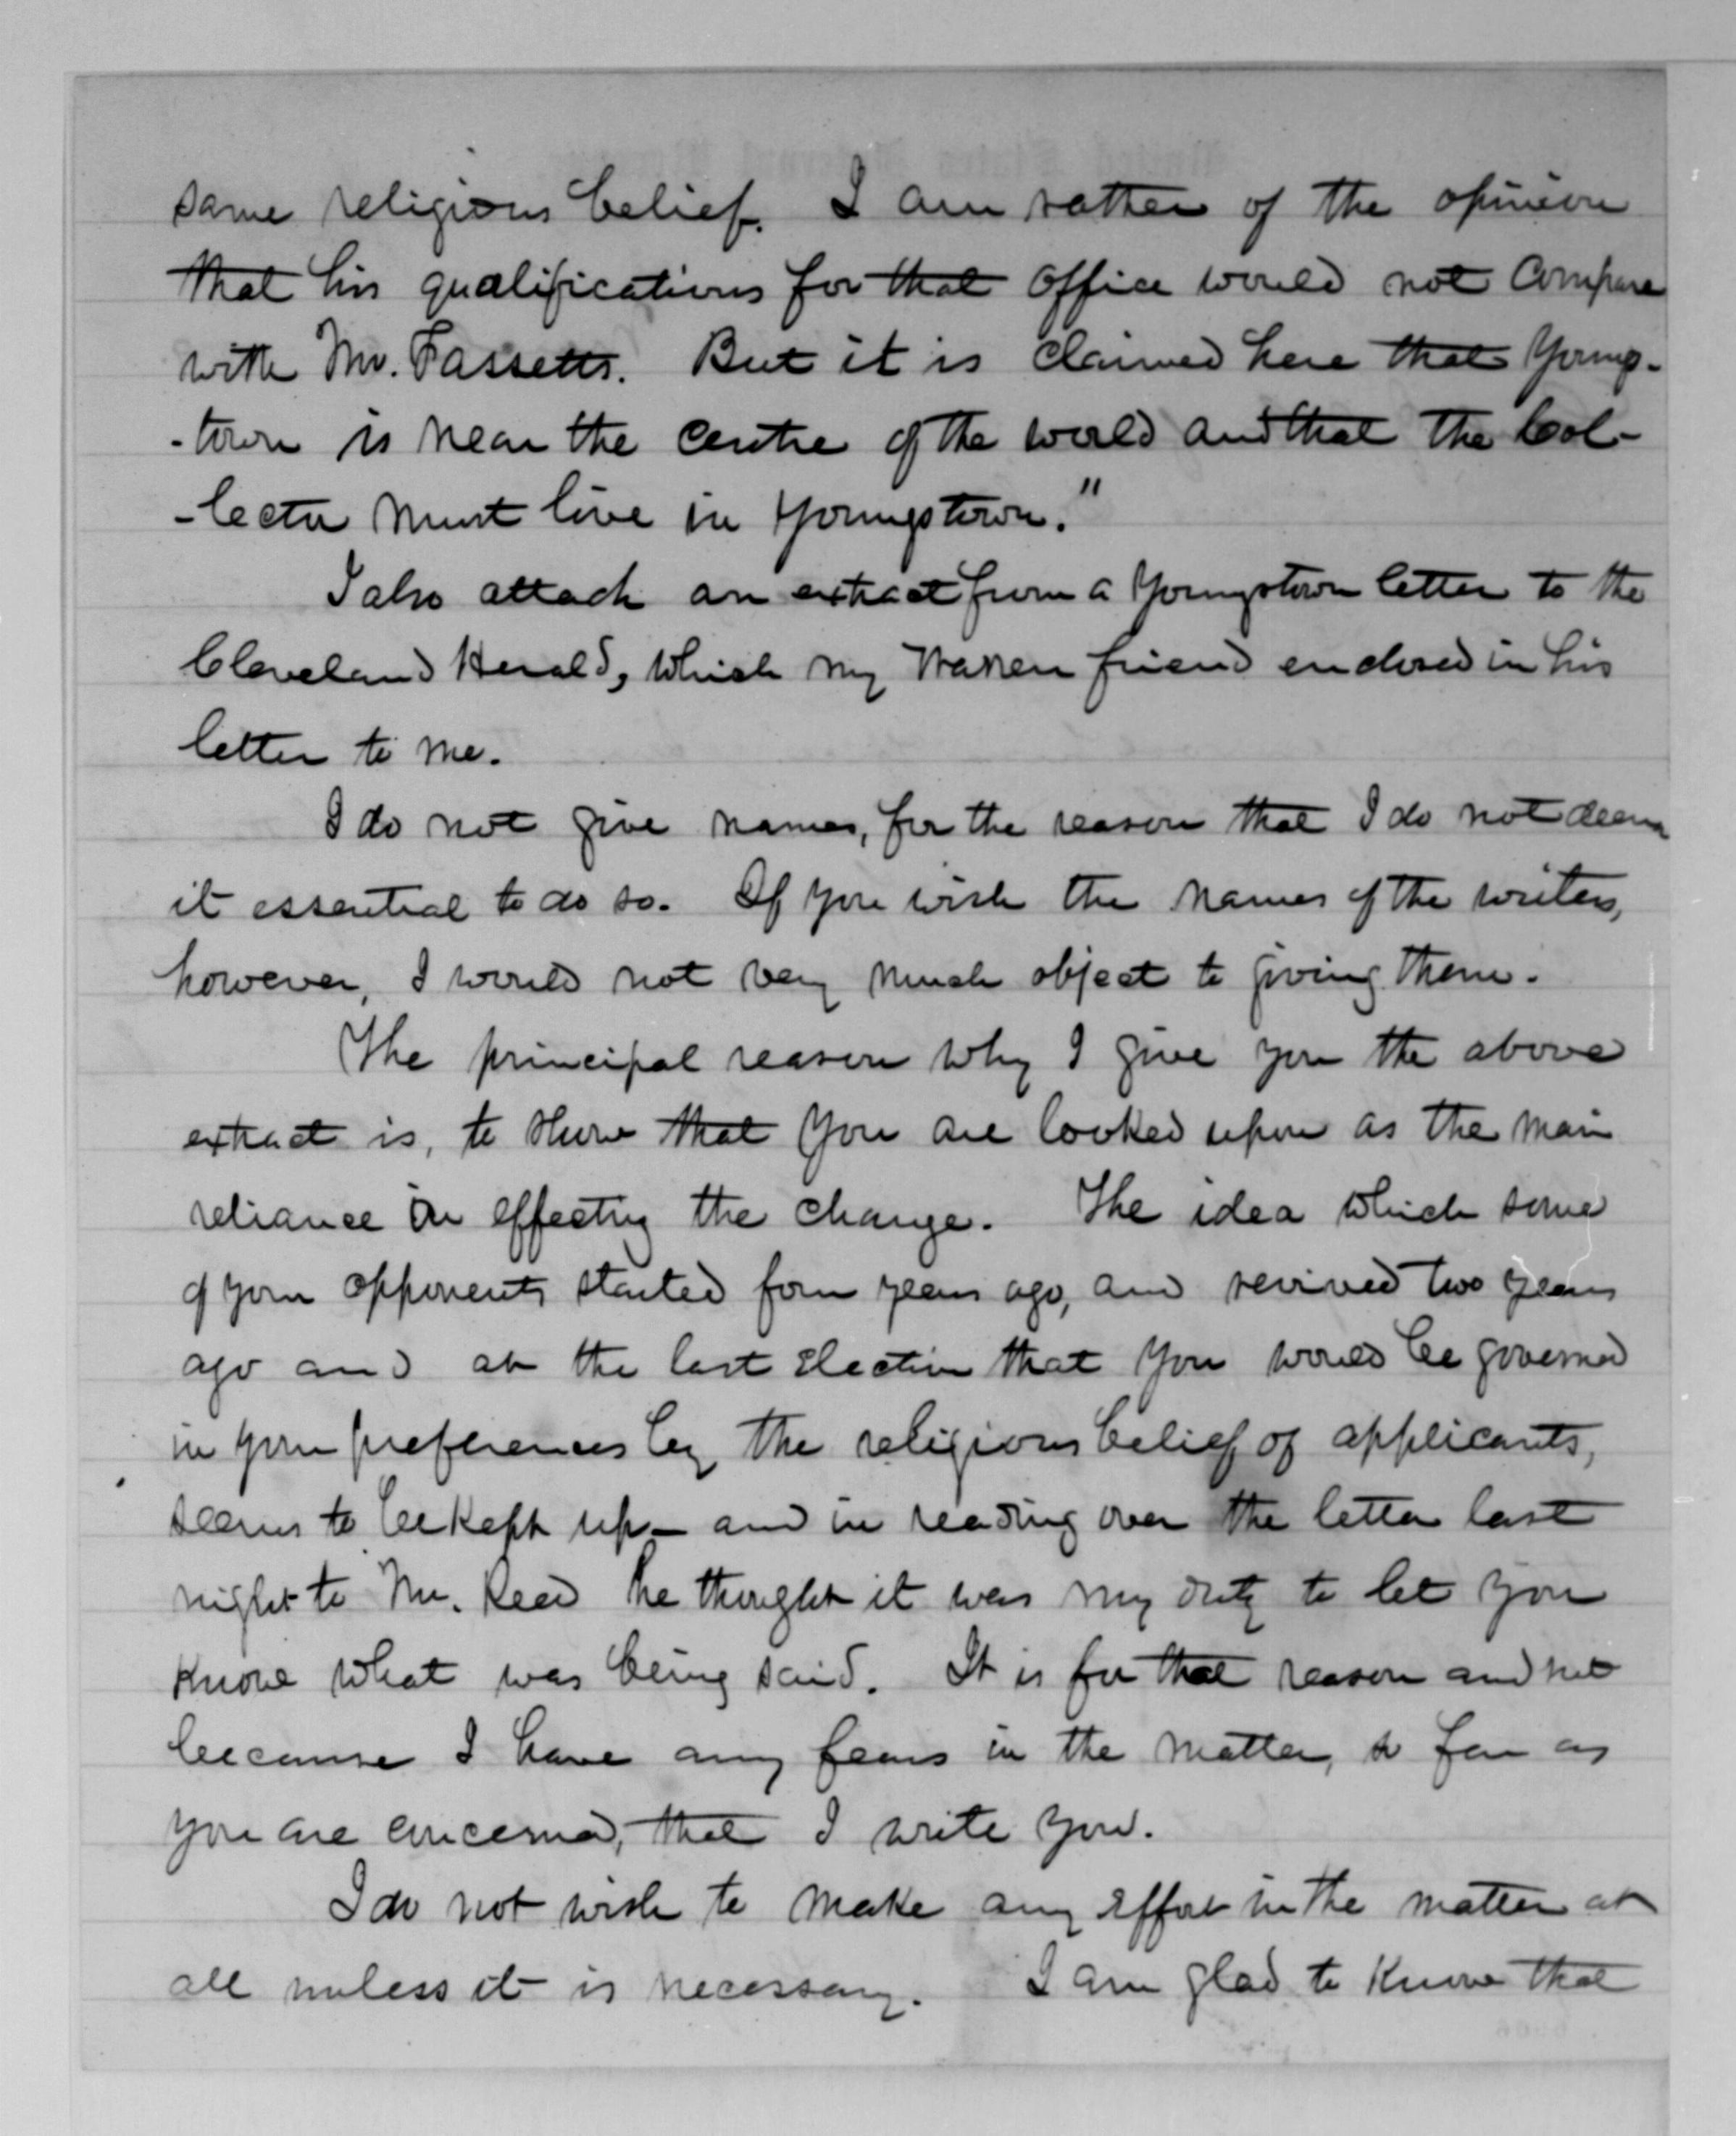 same religious belief. I am rather of the opinion
that his qualifications for that office would not compare
with Mr. Fassetts. But it is claimed here that Youngs-
-town is near the centre of the world and that the Col-
-lector must live in Youngstown."
I also attach an extract from a Youngstown letter to the
Cleveland Herald, which my Warren friend enclosed in his
letter to me.
I do not give names, for the reason that I do not deem
it essential to do so. If you wish the names of the writers,
however, I would not very much object to giving them.
The principal reason why I give you the above
extract is, to show that you are looked upon as the main
reliance in effecting the change. The idea which some
of your opponents started four years ago, and revived two years
ago and at the last election that you would be governed
in your preferences by the religious belief of applicants,
seems to be kept up - and in reading over the letter last
night to Mr. Reed he thought it was my duty to let you
know what was being said. It is for that reason and not
because I have any fears in the matter, so far as
you are concerned, that I write you.
I do not wish to make any effort in the matter at
all unless it is necessary. I am glad to know that